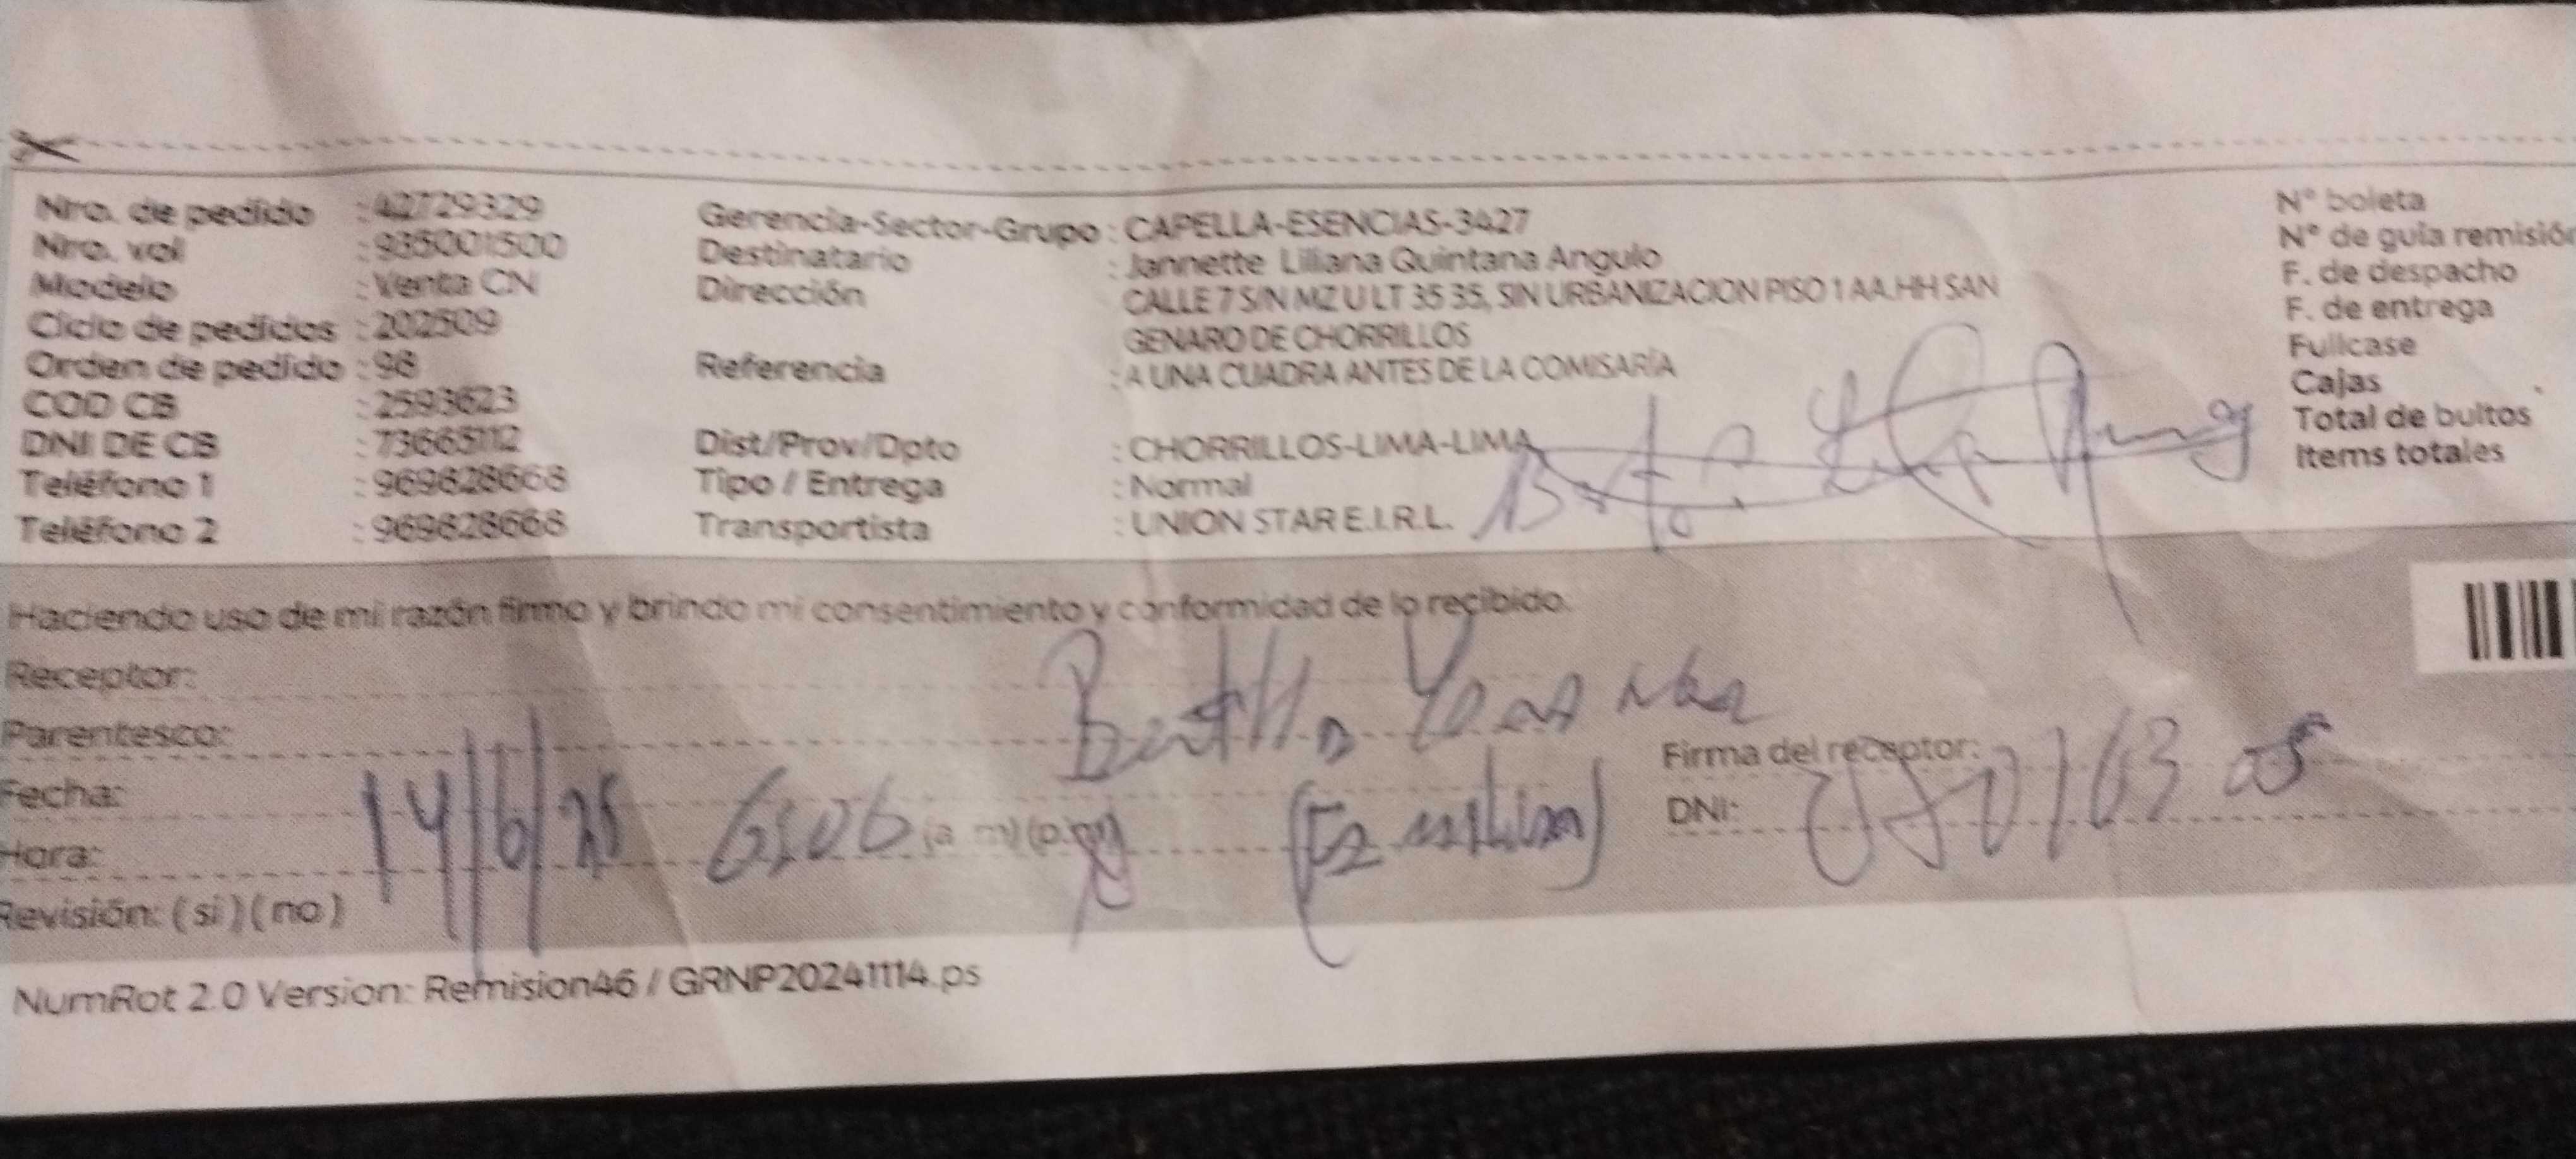 Nro. de pedido : 42729329
Nro. vol : 935001500
Modelo : Venta CN
Ciclo de pedidos : 202509
Orden de pedido : 98
COD CB : 2593623
DNI DE CB : 73665112
Teléfono 1 : 969828668
Teléfono 2 : 969828668
Gerencia-Sector-Grupo : CAPELLA-ESENCIAS-3427
Destinatario : Jannette Liliana Quintana Angulo
Dirección : CALLE 7 S/N MZ U LT 35 35, SIN URBANIZACION PISO 1 AA.HH SAN
GENARO DE CHORRILLOS
Referencia : A UNA CUADRA ANTES DE LA COMISARÍA
Dist/Prov/Dpto : CHORRILLOS-LIMA-LIMA
Tipo / Entrega : Normal
Transportista : UNION STAR E.I.R.L.
N° boleta
N° de guía remisión
F. de despacho
F. de entrega
Fullcase
Cajas
Total de bultos
Items totales
Haciendo uso de mi razón firmo y brindo mi consentimiento y conformidad de lo recibido.
Receptor:
Parentesco:
Fecha: 14/6/25
Hora: 6:06 (a.m) (p.m)
Firma del receptor:
DNI:
Revisión: ( si ) ( no )
NumRot 2.0 Version: Remision46 / GRNP20241114.ps